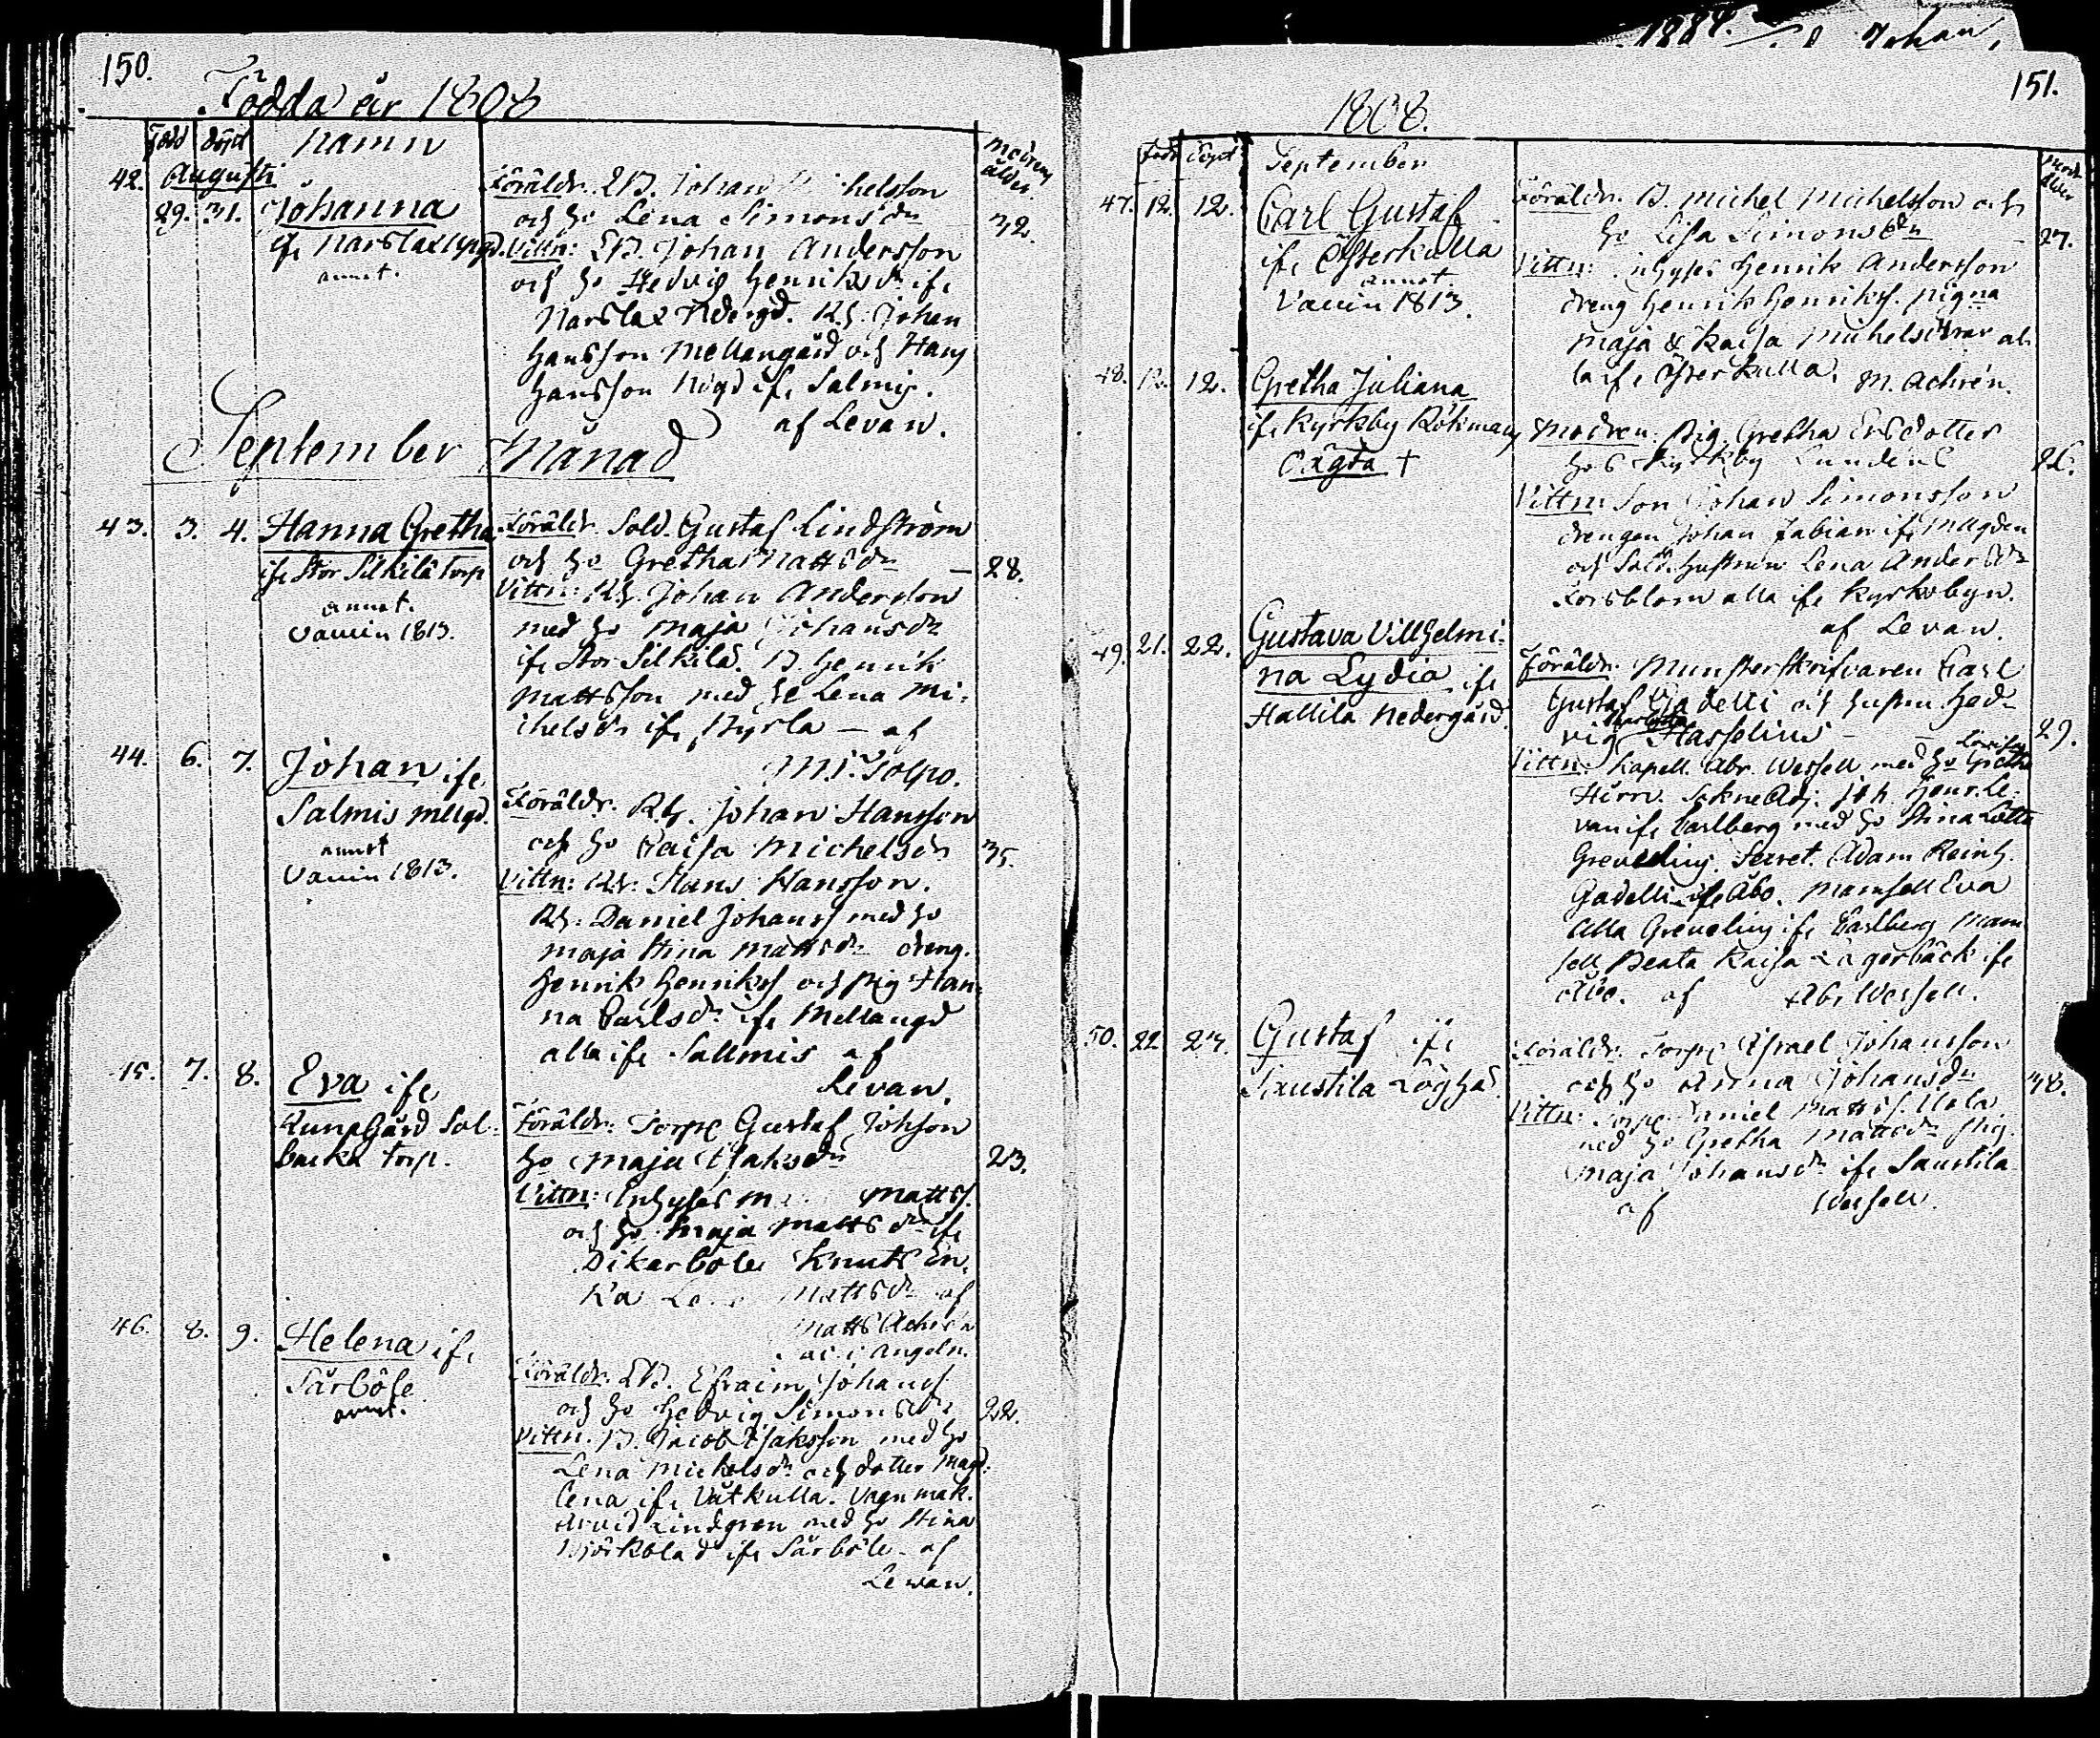 150.
Födda år 1808
Född döpt Namn Modrens ålder
42. Augusti
29. 31. Johanna
ifr. Narslax
annot.
Föräldr. Johan
och ho Lena Simonsdr 32.
Vittn: Johan Andersson
och ho Hedvig Henriksdr ifr.
Narslax Nedergd. Rh. Johan
Hansson Mellangård och Hans
Hansson Nigd ifr. Salmis.
af Levan.
September Månad
43. 3. 4. Hanna Gretha
ifr Stor Silkilä torp
annot.
Vaccin 1813.
Föräldr. Sold. Gustaf Lindström
och ho Gretha Mattsdr — 28.
Vittn: Rh. Johan Andersson
med ho Maja Johansdr
ifr Stor Silkilä. B. Henrik
Mattsson med ho Lena Mi-
chelsdr ifr. Kyrla — af
Tolpo.
44. 6. 7. Johan ifr.
Salmis Mellgd.
annot
Vaccin 1813.
Föräldr. Rh. Johan Hansson
och ho Caisa Michelsdr 35.
Vittn: Rh. Hans Hansson.
Rh. Daniel Johanss med ho
Maja Stina Mattsdr dreng.
Henrik Henrikss och pig Han-
na Carlsdr ifr Mellangd
alla ifr. Sallmis af
Levan.
45. 7. 8. Eva ifr
Kungsgård Sal-
backa torp.
Föräldr: Torp. Gustaf Johsson
ho Maja Isaksdr 23.
Vittn: Inhyses Mattss.
och ho Maja Mattsdr ifr
Dikarböle Knuts En-
ka Mattsdr af
Matts Achrén
i Angeln.
46. 8. 9. Helena ifr.
Särböle
annot.
Föräldr. Efraim Johanss
och ho Hedvig Simonsdr 22.
Vittn. B. Jacob Isaksson med ho
Lena Michelsdr och dotter Magd-
lena ifr. Vätkulla. Vagnmak.
Arvid Lindgren med ho Stina
Björkblad ifr Särböle af
Lewan.
1884. Johan,
151.
1808.
Född Döpt September Modr. ålder
47. 12. 12. Carl Gustaf
ifr. Österkulla
annot.
Vaccin 1813.
Föräldr. B. Michel Michelsson och
ho Lisa Simonsdr 27.
Vittn: inhyses Henrik Andersson
dreng Henrik Henrikss. pigna
Maja & Kaisa Michelsdttrar al-
la ifr. Österkulla. M. Achrén.
48. 12. 12. Gretha Juliana
ifr Kyrkby Rökmans
oägta †
Modren: Pig. Gretha Ersdotter
hos Kyrkby Lundens 26.
Vittn: Son Johan Simonsson
drengen Johan Fabian ifr Magden
och Sold. hustrun Lena Andersdr
Forsblom alla ifr Kyrkobyn.
af Levan.
49. 21. 22. Gustava Vilhelmi-
na Lydia ifr
Hallila Nedergård
Föräldr. Munsterskrifvaren Carl
Gustaf Gadelli och hustru Hed-
vig Charlotta Hasselius 29.
Vittn. Kapell. Abr. Wessell med ho Lovisa Gretha
Hirn. Sokne Adj. Joh. Henr. Le-
van ifr Carlberg med ho Stina Lotta
Greveling. Secret. Adam Reinh.
Gadelli ifr Åbo. Mamsell Eva
Ulla Greveling ifr Carlberg Mam-
sell Beata Kaisa Lagerbäck ifr
Åbo. af Abr Wessell.
50. 22. 24. Gustaf ifr
Saustila
Föräldr. Torp. Israel Johansson
och ho Anna Johansdr 38.
Vittn: Torp. Daniel Mattss.
med ho Gretha Mattsdr Pig.
Maja Johansdr ifr Saustila
af Wessell.